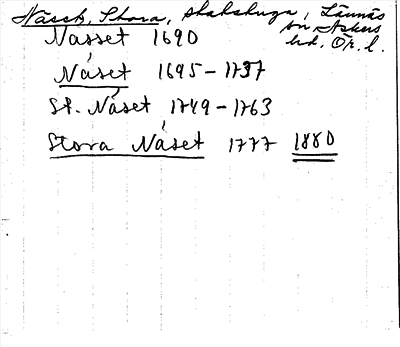 Näset, Stora, , Lännäs
sn Askers
hd. Ör. l.
Nasset 1690
Näset 1695-1737
St. Näset 1749-1763
Stora Näset 1777 1880